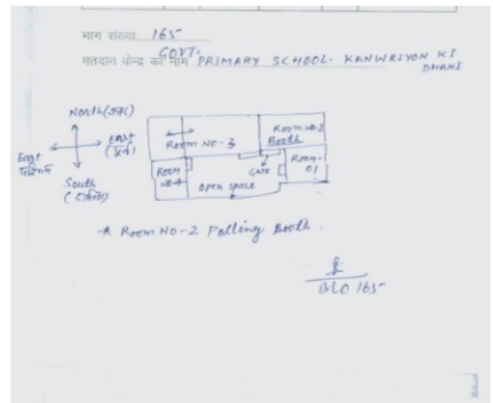 भाग संख्या 165
मतदान केन्द्र का नाम GOVT. PRIMARY SCHOOL. KANWRIYON KI DHANI
North (उत्तर)
East
East
पश्चिम
South
Room NO-3
Room NO-2
Booth
Room NO-4
GATE
Room-01
open space
* Room NO-2 Polling Booth.
BLO 165